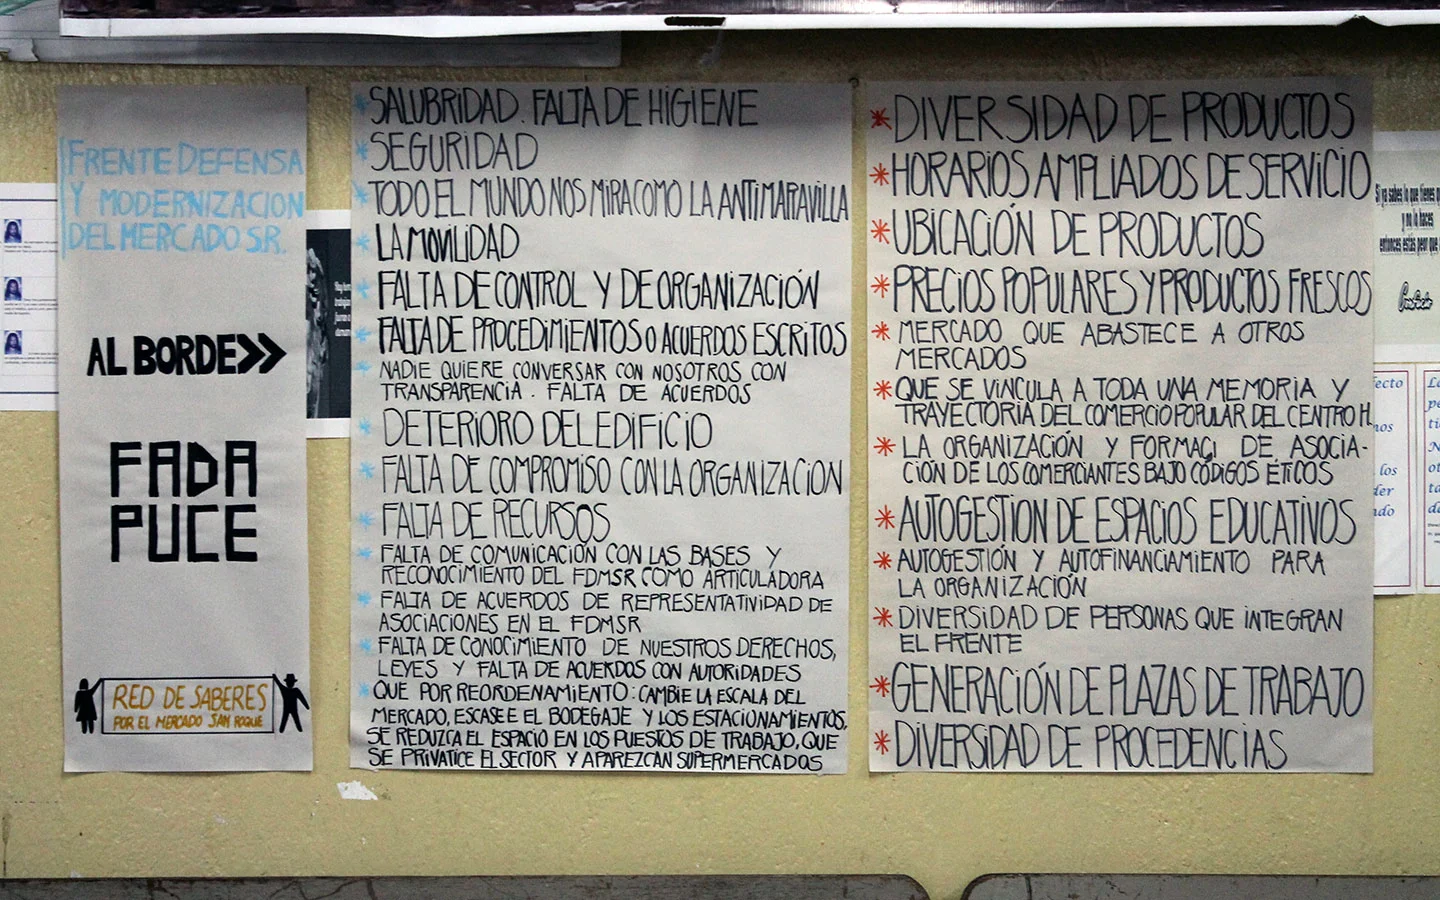 FRENTE DEFENSA
Y MODERNIZACION
DEL MERCADO SR.
AL BORDE>>
FADA
PUCE
RED DE SABERES
POR EL MERCADO SAN ROQUE
* SALUBRIDAD. FALTA DE HIGIENE
* SEGURIDAD
* TODO EL MUNDO NOS MIRA COMO LA ANTIMARAVILLA
* LA MOVILIDAD
* FALTA DE CONTROL Y DE ORGANIZACIÓN
* FALTA DE PROCEDIMIENTOS O ACUERDOS ESCRITOS
* NADIE QUIERE CONVERSAR CON NOSOTROS CON
TRANSPARENCIA. FALTA DE ACUERDOS
* DETERIORO DEL EDIFICIO
* FALTA DE COMPROMISO CON LA ORGANIZACION
* FALTA DE RECURSOS
* FALTA DE COMUNICACIÓN CON LAS BASES Y
RECONOCIMIENTO DEL FDMSR COMO ARTICULADORA
* FALTA DE ACUERDOS DE REPRESENTATIVIDAD DE
ASOCIACIONES EN EL FDMSR
* FALTA DE CONOCIMIENTO DE NUESTROS DERECHOS,
LEYES Y FALTA DE ACUERDOS CON AUTORIDADES
* QUE POR REORDENAMIENTO: CAMBIE LA ESCALA DEL
MERCADO, ESCASEE EL BODEGAJE Y LOS ESTACIONAMIENTOS,
SE REDUZCA EL ESPACIO EN LOS PUESTOS DE TRABAJO, QUE
SE PRIVATICE EL SECTOR Y APAREZCAN SUPERMERCADOS
* DIVERSIDAD DE PRODUCTOS
* HORARIOS AMPLIADOS DE SERVICIO
* UBICACIÓN DE PRODUCTOS
* PRECIOS POPULARES Y PRODUCTOS FRESCOS
* MERCADO QUE ABASTECE A OTROS
MERCADOS
* QUE SE VINCULA A TODA UNA MEMORIA Y
TRAYECTORIA DEL COMERCIO POPULAR DEL CENTRO H.
* LA ORGANIZACIÓN Y FORMACI DE ASOCIA-
CIÓN DE LOS COMERCIANTES BAJO CÓDIGOS ÉTICOS
* AUTOGESTION DE ESPACIOS EDUCATIVOS
* AUTOGESTIÓN Y AUTOFINANCIAMIENTO PARA
LA ORGANIZACIÓN
* DIVERSIDAD DE PERSONAS QUE INTEGRAN
EL FRENTE
* GENERACIÓN DE PLAZAS DE TRABAJO
* DIVERSIDAD DE PROCEDENCIAS
Si ya sabes lo que tienes q
y no lo haces
entonces estás peor que